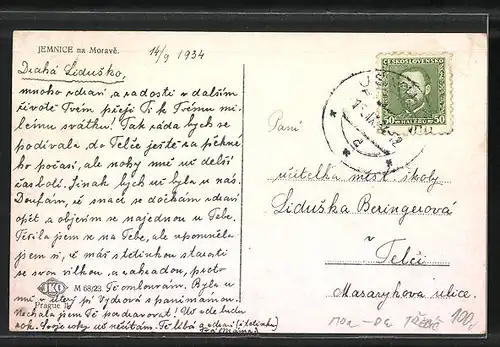 JEMNICE na Moravě.
14/9 1934
Drahá Liduško,
mnoho zdraví a radosti v dalším
životě Tvém přeji Ti k Tvému mi-
lému svátku! Tak ráda bych se
podívala do Telče ještě za pěkné-
ho počasí, ale nohy mně už delší
čas bolí. Jinak bych už byla u vás.
Doufám, že snad se dočkám zdraví
opět a objevím se najednou u Tebe.
Těšila jsem se na Tebe, ale vzpomněla
jsem si, že máš s tetinkou starosti
se svou vilkou, a zahradou, proto
Tě omlouvám. Byla u
mně v úterý pí Vydrová s paní mámou.
Nechala jsem Tě pozdravovat!
rok. Svoje roky už nečítám. Tě líbá a zdraví (i tetinku)
Tvá
ČESKOSLOVENSKO
50 HALÉŘŮ 50
Paní
učitelka měšť. školy
Liduška Beringerová
v Telči
Masarykova ulice.
M 68/23
Prague
100,-